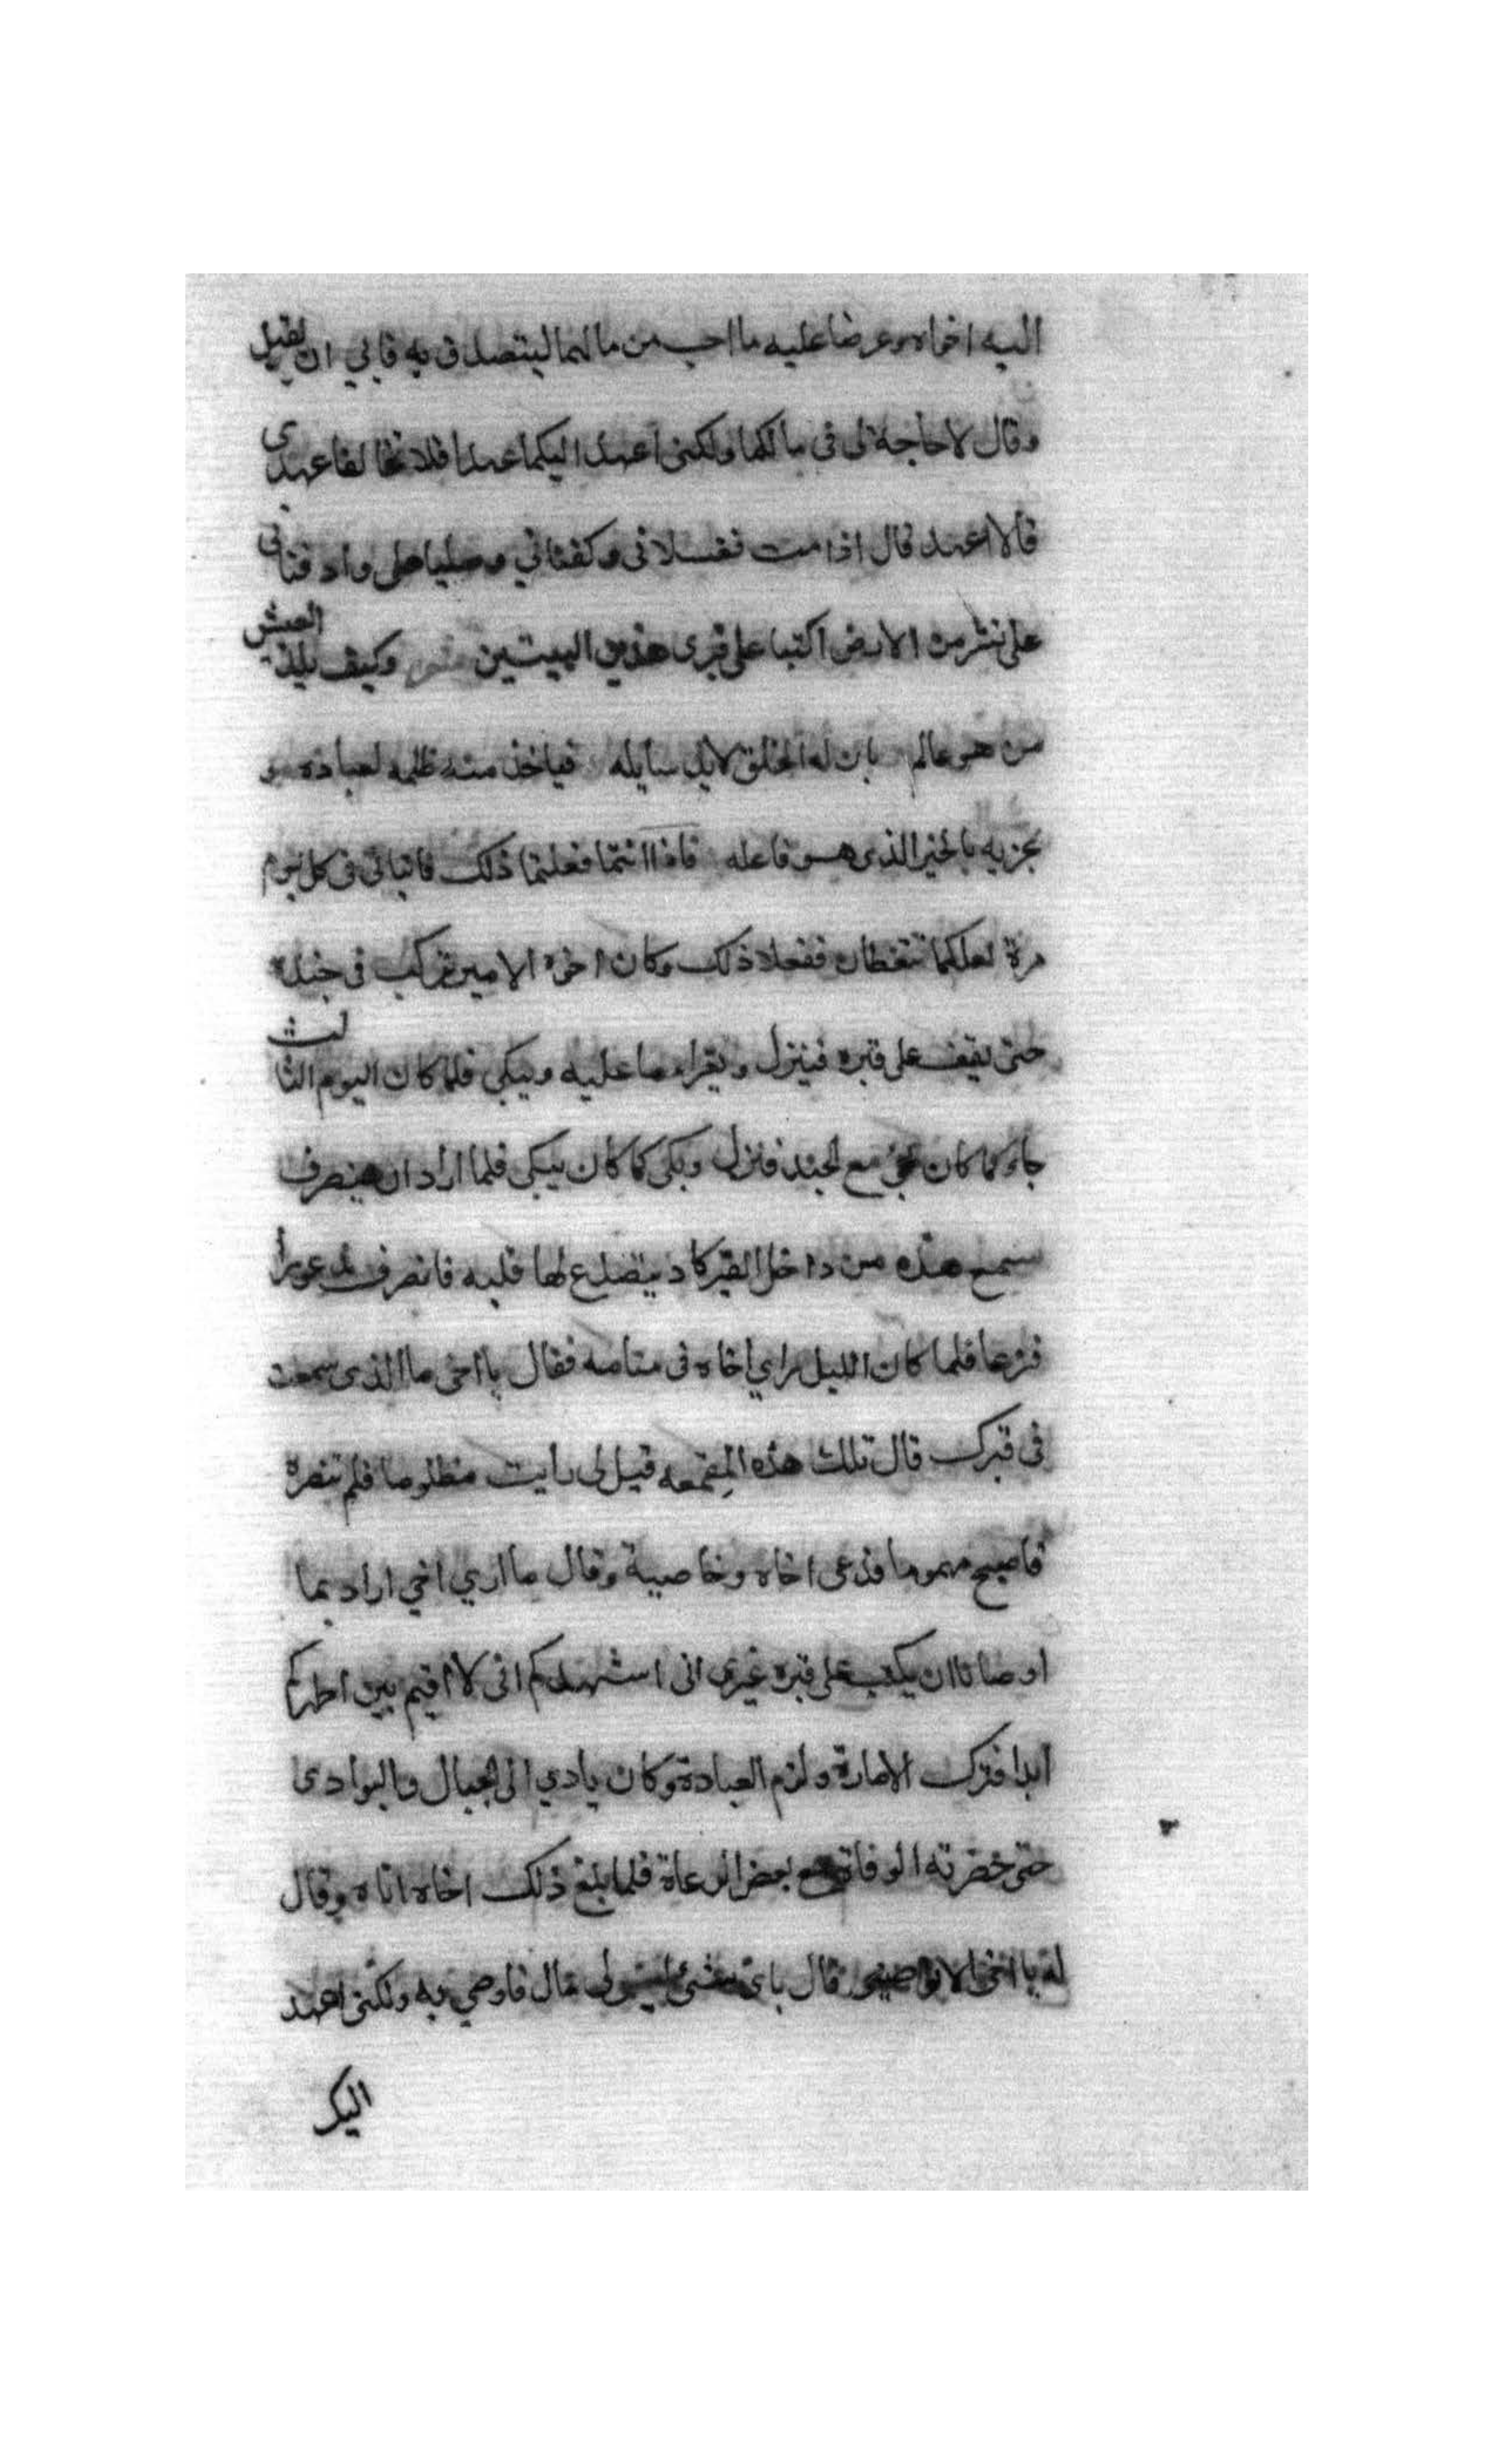 اليه اخواه وعرضا عليه ما احب من مالهما ليتصدق به فابي ان يقبل
وقال لا حاجة لى فى مالكما ولكنى اعهد اليكما عهدا فلا تخالفا عهدى
قالا اعهد قال اذا مت فغسلانى وكفنانى وصليا على وادفنانى
على نشز من الارض اكتبا على قبرى هذين البيتين وكيف يلذ العيش
من هو عالم بان له الخلق لابد سايله فياخذ منه ظلمه لعباده و
يجزيه بالخير الذى هو فاعله فاذا انتما فعلتما ذلك فاتيانى فى كل يوم
مرة لعلكما تتعظان ففعلا ذلك وكان اخوه الامير يركب فى جنده
حتى يقف على قبره فينزل ويقراء ما عليه ويبكى فلما كان اليوم الثالث
جاء كما كان يجئ مع الجند فنزل وبكى كما كان يبكى فلما اراد ان ينصرف
سمع هدّه من داخل القبر كاد يتصدع لها قلبه فانصرف مذعورا
فزعا فلما كان الليل راى اخاه فى منامه فقال يا اخى ما الذى سمعت
فى قبرك قال تلك هذه المِقمعه قيل لى رأيت مظلوما فلم تنصرة
فاصبح مهموما فدعى اخاه وخاصية وقال ما اري اخي اراد بما
اوصانا ان يكتب على قبره غيرى انى اشهدكم انى لا اقيم بين اظهركم
ابدا فترك الامارة ولزم العبادة وكان يادي الى الجبال والبوادى
حتى حضرته الوفاة مع بعض الرعاة فلما بلغ ذلك اخاه اتاه وقال
له يا اخى الا توصينى قال باى شئ ليس لى مال فاوصي به ولكنى اعهد
اليك